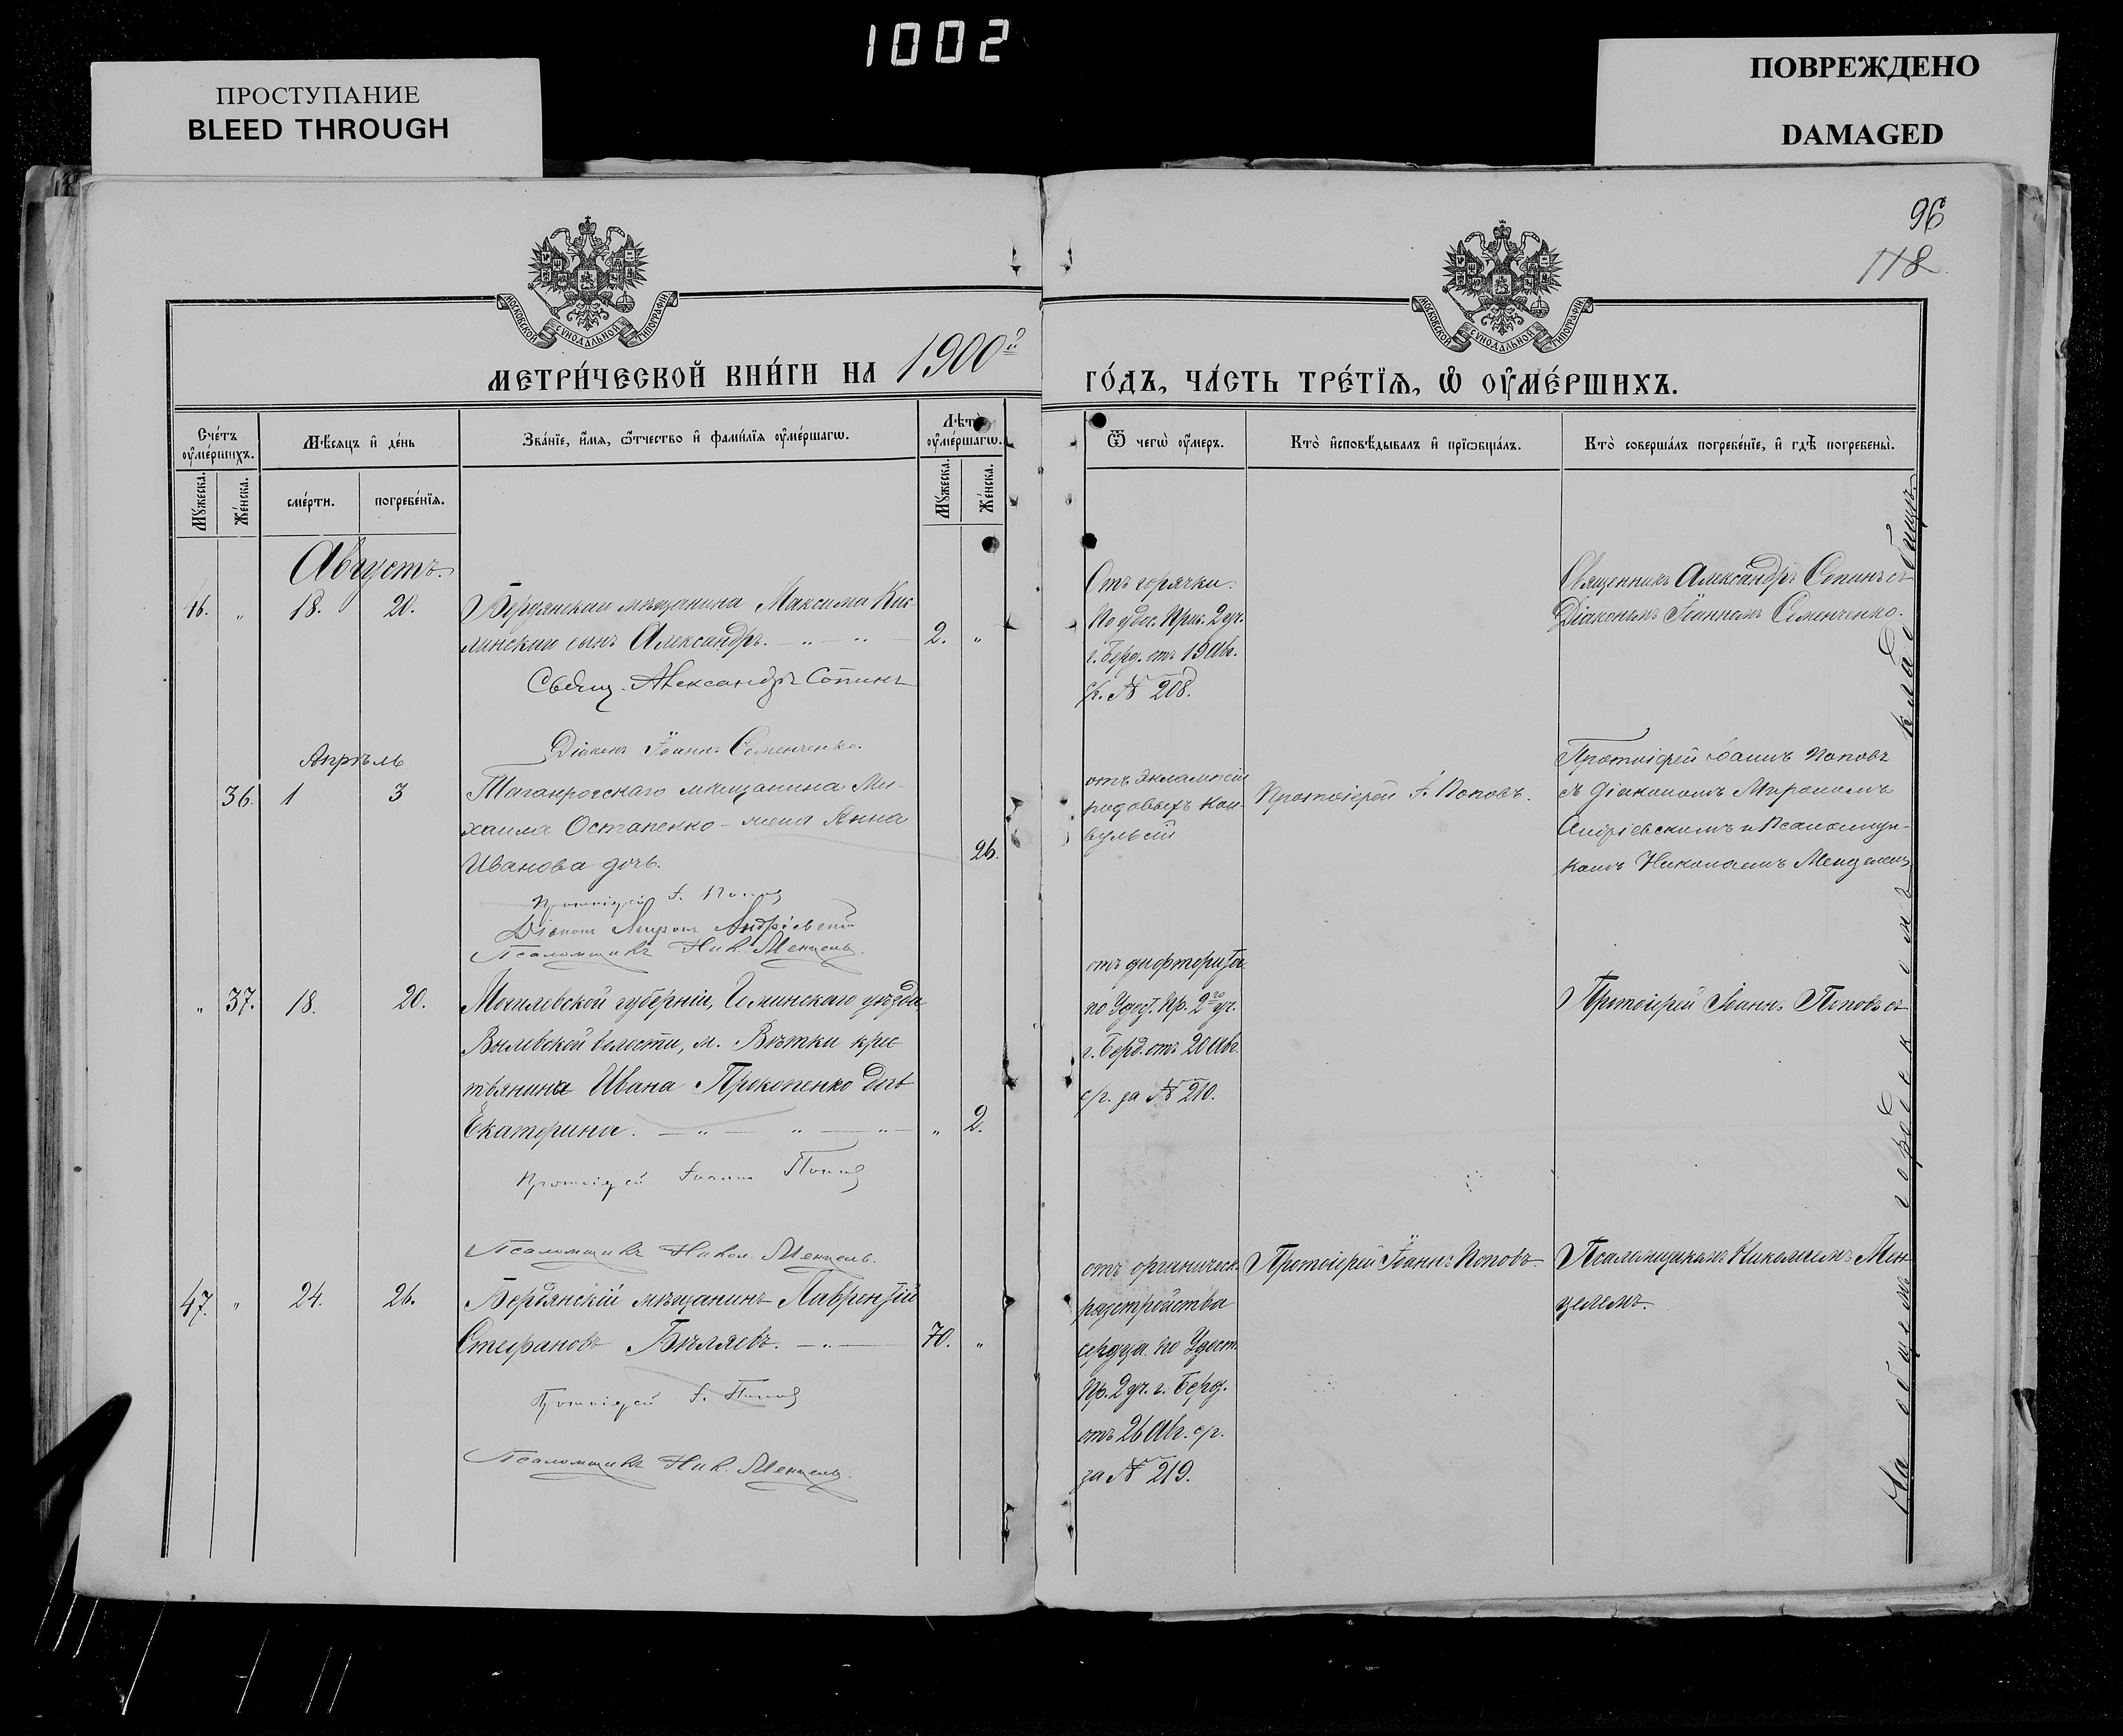 1002
ПРОСТУПАНИЕ
BLEED THROUGH
ПОВРЕЖДЕНО
DAMAGED
96
118
МОСКОВСКОЙ СѴНОДАЛЬНОЙ ТИПОГРАФІИ
МОСКОВСКОЙ СѴНОДАЛЬНОЙ ТИПОГРАФІИ
МЕТРИ́ЧЕСКОЙ КНИ́ГИ НА 1900й
ГО́ДЪ, ЧА́СТЬ ТРЕ́ТЇѦ, Ѡ ОУ҆МЕ́РШИХЪ.
Сче́тъ оу҆ме́ршихъ.
Мѣ́сяцъ и҆ де́нь
Зва́нїе, и҆́мѧ, ѻ҆́тчество и҆ фами́лїѧ оу҆ме́ршагѡ.
Лѣтъ оу҆ме́ршагѡ.
Ѿ чегѡ̀ оу҆́меръ.
Кто̀ и҆сповѣ́дывалъ и҆ прїѡбща́лъ.
Кто̀ соверша́лъ погребе́нїе, и҆ гдѣ̀ погребены̀.
Мꙋ́жеска.
Же́нска.
сме́рти.
погребе́нїѧ.
Мꙋ́жеска.
Же́нска.
Августъ.
16. „ 18. 20. Бердянскаго мѣщанина Максима Кис-
линскаго сынъ Александръ. 2. „
Свящ. Александръ Сопинъ
Діаконъ Іоаннъ Семенченко.
Отъ горячки.
По удос. Прис. 2 уч.
г. Берд. отъ 19 Авг.
с/г. № 208.
Священникъ Александръ Сопинъ съ
Діакономъ Іоанномъ Семенченко.
Апрѣль
36. 1 3 Таганрогскаго мѣщанина Ми-
хаила Остапенко - жена Анна
Иванова дочь. 26.
Протоіерей І. Поповъ
Діаконъ Миронъ Андріевскій
Псаломщикъ Ник. Менцель.
отъ эклампсіи
родовыхъ кон-
вульсій
Протоіерей І. Поповъ.
Протоіерей Іоаннъ Поповъ
съ діакономъ Мирономъ
Андріевскимъ и Псаломщи-
комъ Николаемъ Менцелемъ
„ 37. 18. 20. Могилевской губерніи, Гомельскаго уѣзда,
волости, м. Вѣтки крес
тьянина Ивана Прокопенко дочь
Екатерина. „ 2.
Протоіерей Іоаннъ Поповъ
Псаломщикъ Никол. Менцель.
отъ дифтерита
по Удост. Пр. 2го уч.
г. Берд. отъ 20 Авг.
с/г. за № 210.
Протоіерей Іоаннъ Поповъ съ
47. „ 24. 26. Бердянскій мѣщанинъ Лаврентій
Стефановъ Бѣляевъ. 70. „
Протоіерей І. Поповъ
Псаломщикъ Ник. Менцель.
отъ органическ.
разстройства
сердца. по Удост.
Пр. 2 уч. г. Берд.
отъ 26 Авг. с/г.
за № 219.
Протоіерей Іоаннъ Поповъ.
Псаломщикомъ Николаемъ Мен
целемъ.
На общемъ городскомъ кладбищѣ.